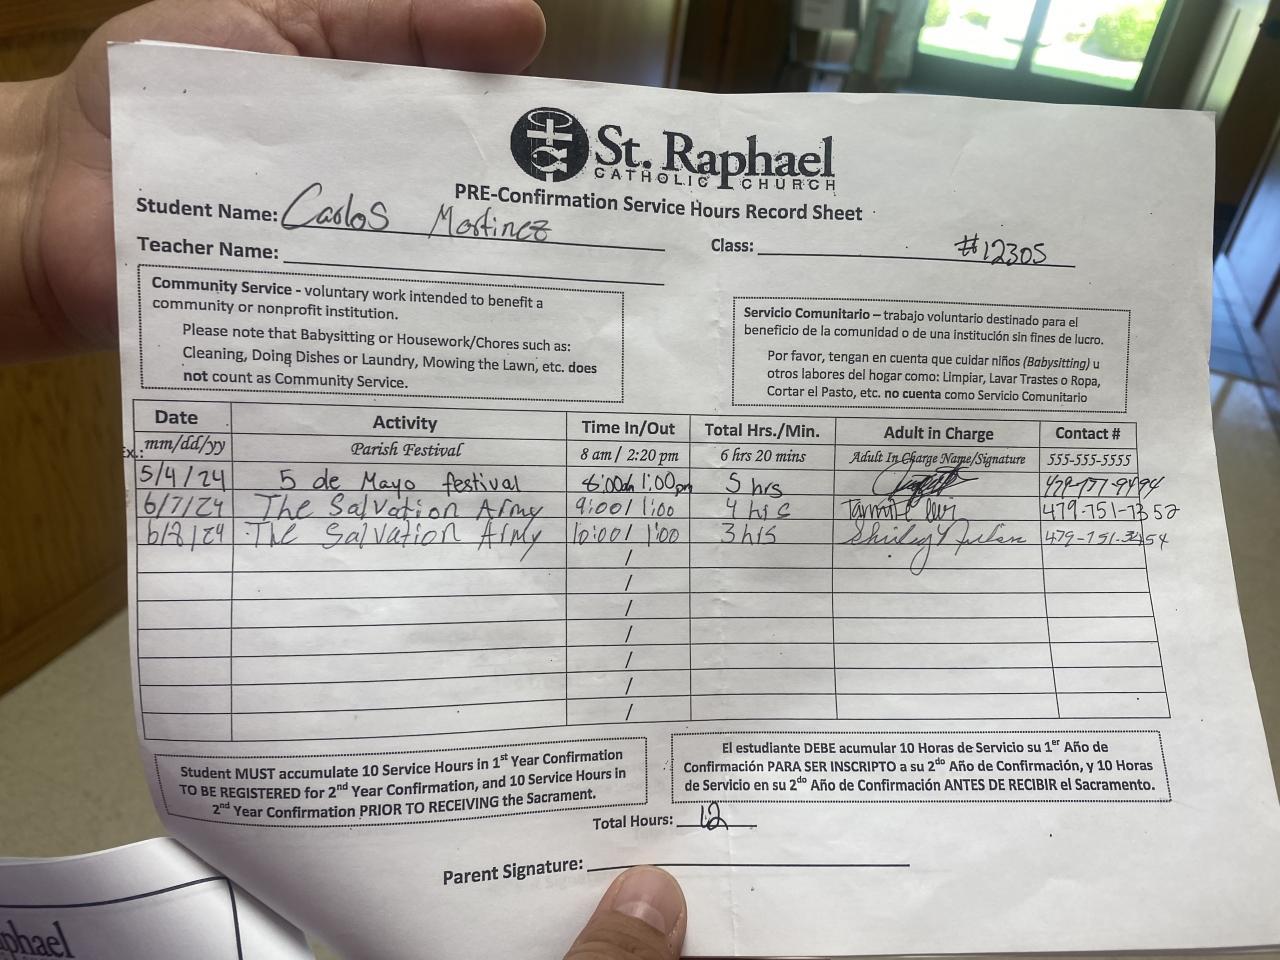 St. Raphael
CATHOLIC CHURCH
PRE-Confirmation Service Hours Record Sheet
Student Name: Carlos Martinez
Class: #12305
Teacher Name:
Community Service - voluntary work intended to benefit a
community or nonprofit institution.
Please note that Babysitting or Housework/Chores such as:
Cleaning, Doing Dishes or Laundry, Mowing the Lawn, etc. does
not count as Community Service.
Servicio Comunitario – trabajo voluntario destinado para el
beneficio de la comunidad o de una institución sin fines de lucro.
Por favor, tengan en cuenta que cuidar niños (Babysitting) u
otros labores del hogar como: Limpiar, Lavar Trastes o Ropa,
Cortar el Pasto, etc. no cuenta como Servicio Comunitario
Date Activity Time In/Out Total Hrs./Min. Adult in Charge Contact #
Ex.: mm/dd/yy Parish Festival 8 am / 2:20 pm 6 hrs 20 mins Adult In Charge Name/Signature 555-555-5555
5/4/24 5 de Mayo festival 1:00pm 5 hrs
6/7/24 The Salvation Army 9:00/ 1:00 4 hrs 479-751-1352
6/8/24 The Salvation Army 10:00/ 1:00 3 hrs Shirley
/
/
/
/
/
/
/
Student MUST accumulate 10 Service Hours in 1st Year Confirmation
TO BE REGISTERED for 2nd Year Confirmation, and 10 Service Hours in
2nd Year Confirmation PRIOR TO RECEIVING the Sacrament.
El estudiante DEBE acumular 10 Horas de Servicio su 1er Año de
Confirmación PARA SER INSCRIPTO a su 2do Año de Confirmación, y 10 Horas
de Servicio en su 2do Año de Confirmación ANTES DE RECIBIR el Sacramento.
Total Hours: 12
Parent Signature: